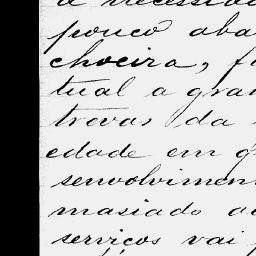 a necessid
pouco aba
choeira, f
tual a gran
trevas da
edade em g
senvolvimen
masiado a
serviços vai